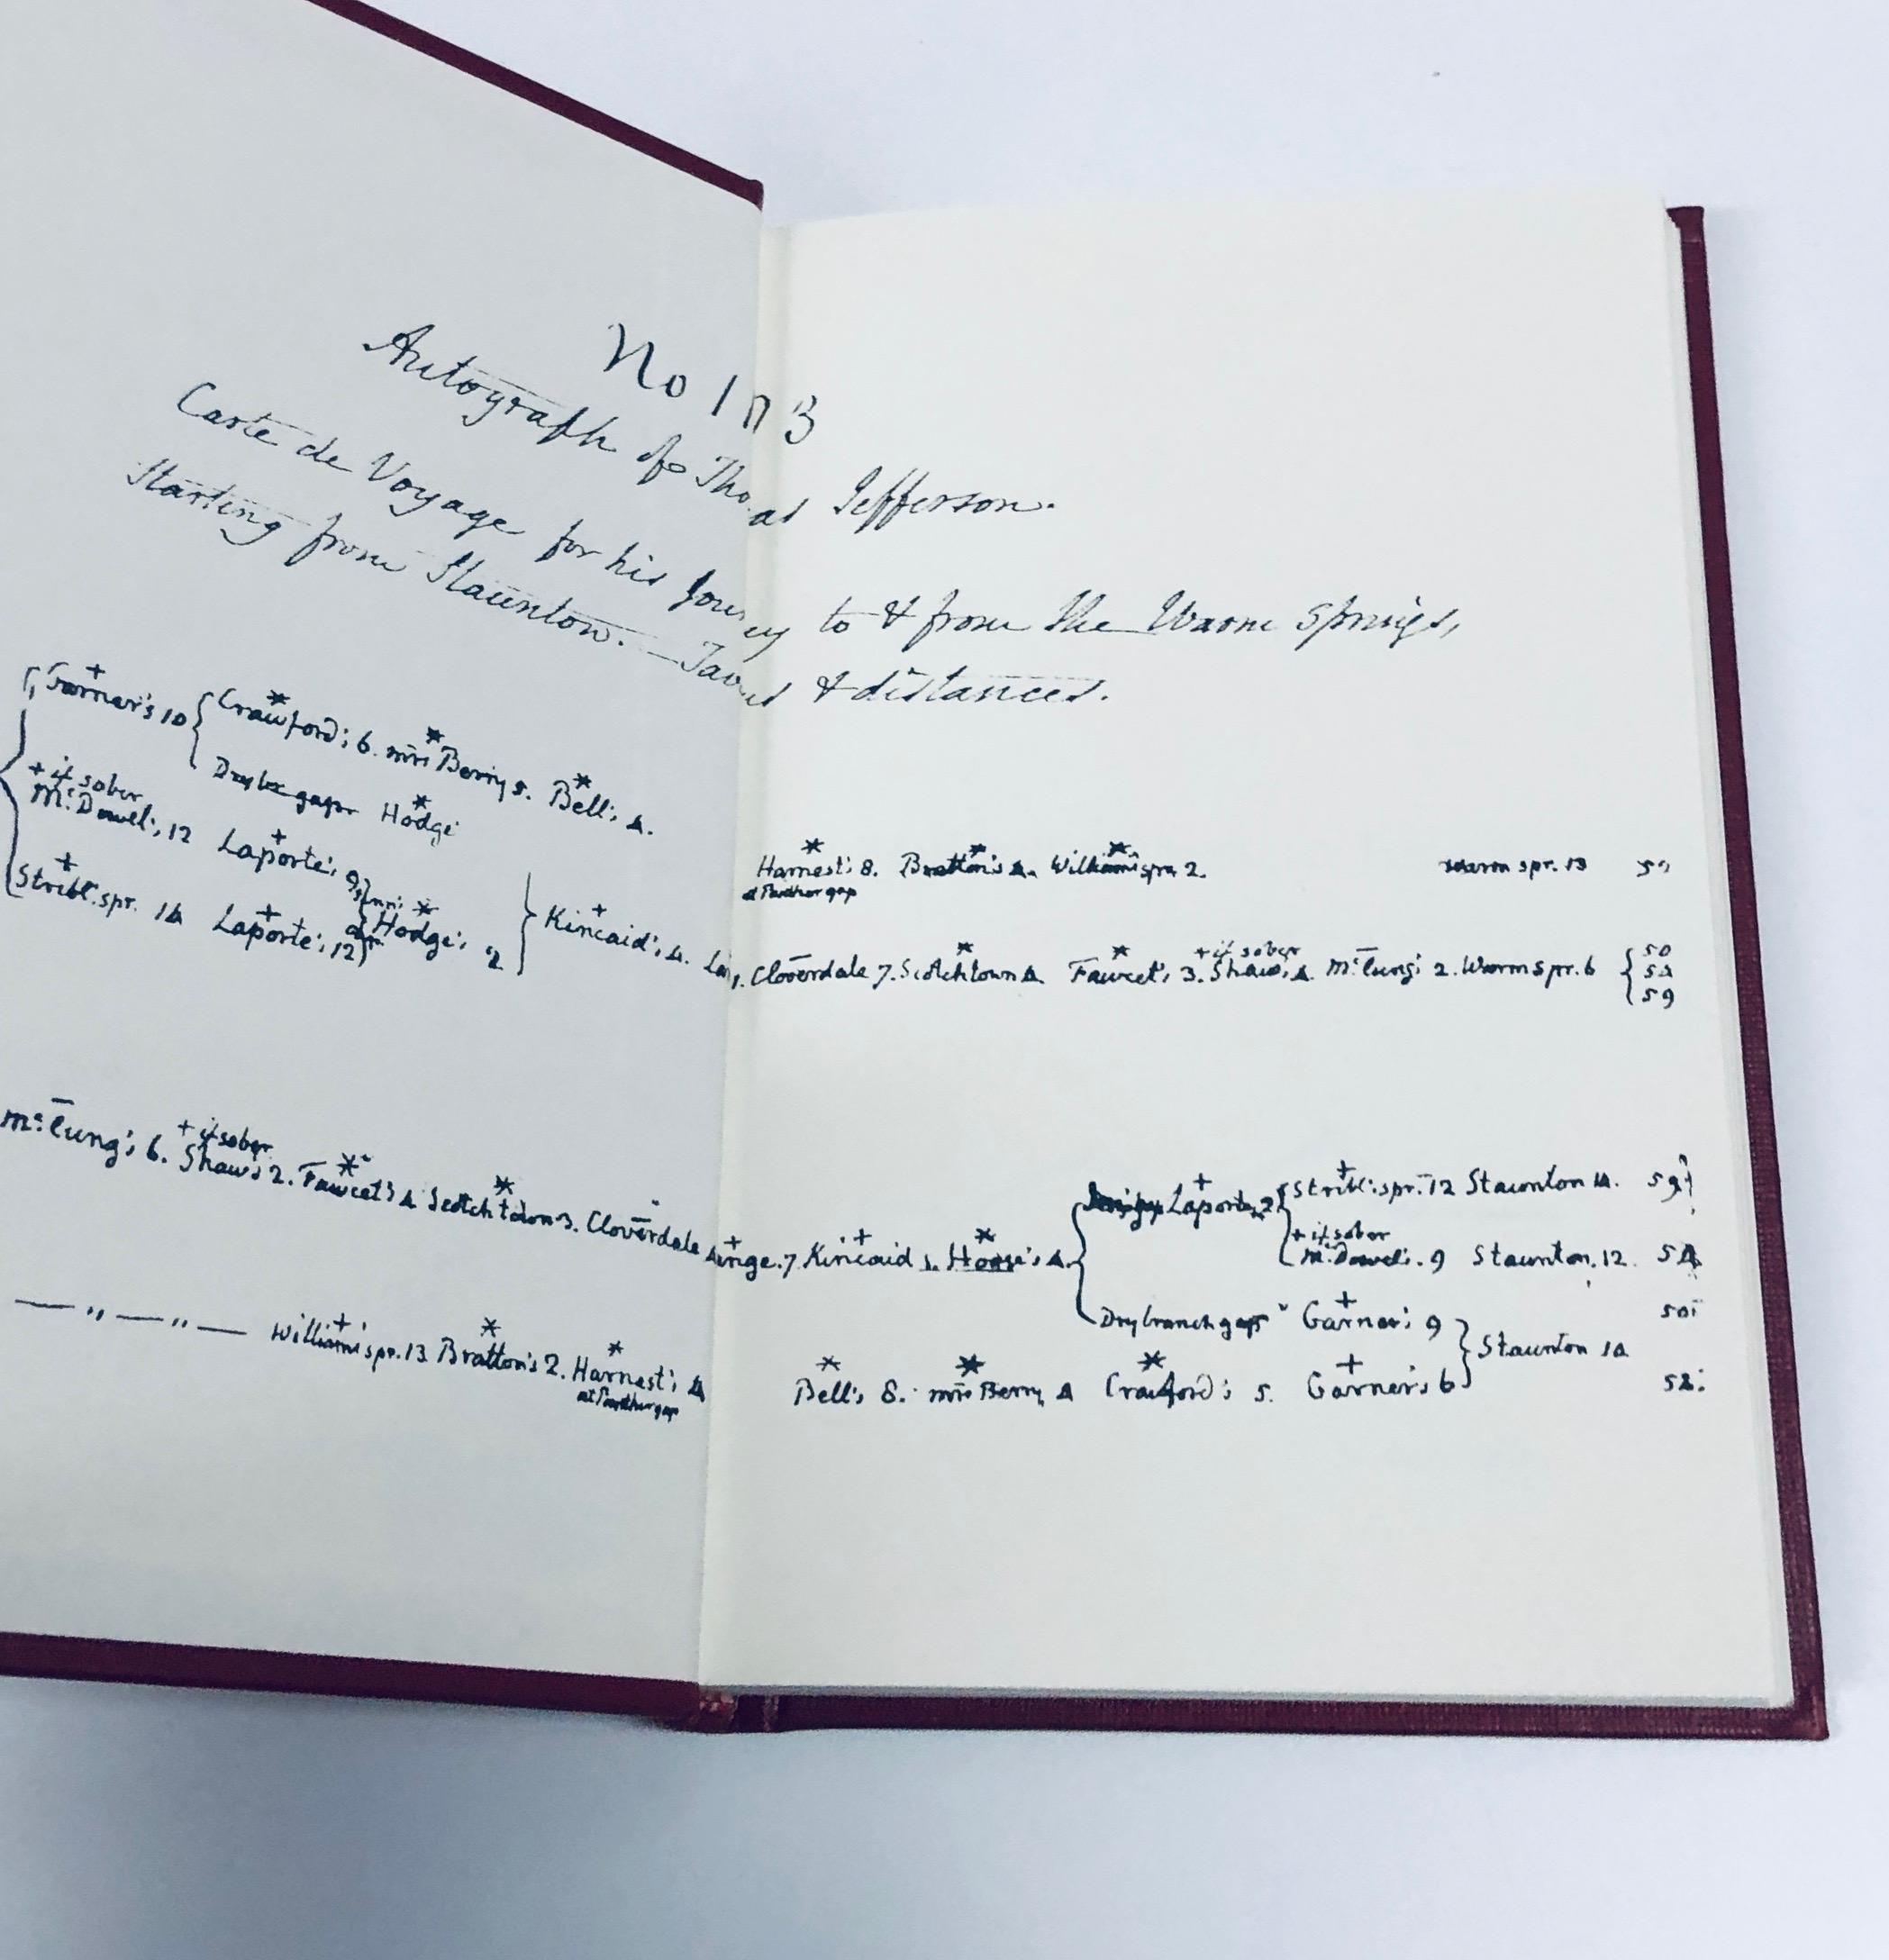 No 173
Autograph of Thomas Jefferson.
Carte de Voyage for his Journey to & from the Warm Springs,
Starting from Staunton. — & distances.
+ * * *
Garner's 10 { Crawford's 6. mrs Berry 5. Bell's 4.
* 
Hodge
* * *
Harnest's 8. Bratton's 4. Williams's spr. 2. Warm spr. 13
at Panther gap
+ if sober +
Mc.Dowel's, 12 Laporte's 9
+ + *
Stribl. spr. 14 Laporte's, 12 Hodge's 2 } 
+ — * * + if sober —
Kincaid's 4. Cloverdale 7. Scotchtown 4. Fawcet's 3. Shaw's 4. Mc.Clung's 2. Warm spr. 6 { 50
54
59
— + if sober * * — + + *
Mc.Clung's 6. Shaw's 2. Fawcet's 4 Scotchtown 3. Cloverdale 7. Kincaid Hodge's 4. {
+ +
Laporte 2 { Stribl. spr. 12 Staunton 14. 59
+ if sober
Mc.Dowel's. 9 Staunton. 12. 54
+
Dry branch gap " Garner's 9 } Staunton 10 50
+ * *
— " — " — Williams's spr. 13 Bratton's 2. Harnest's 4
at Panther gap
* * * +
Bell's 8. mrs Berry 4 Crawford's 5. Garner's 6 52